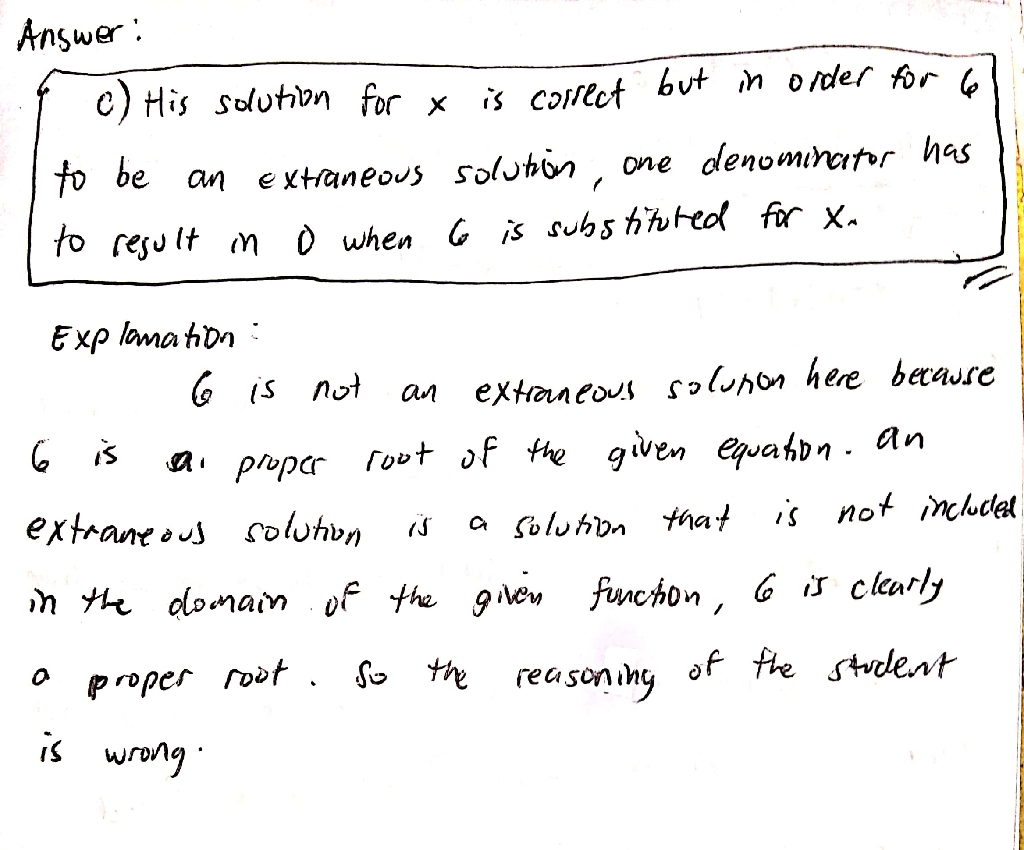 Answer:
c) His solution for x is correct but in order for 6
to be an extraneous solution, one denominator has
to result in 0 when 6 is substituted for x.
Explanation:
6 is not an extraneous solution here because
6 is a proper root of the given equation. an
extraneous solution is a solution that is not included
in the domain of the given function, 6 is clearly
a proper root. So the reasoning of the student
is wrong.